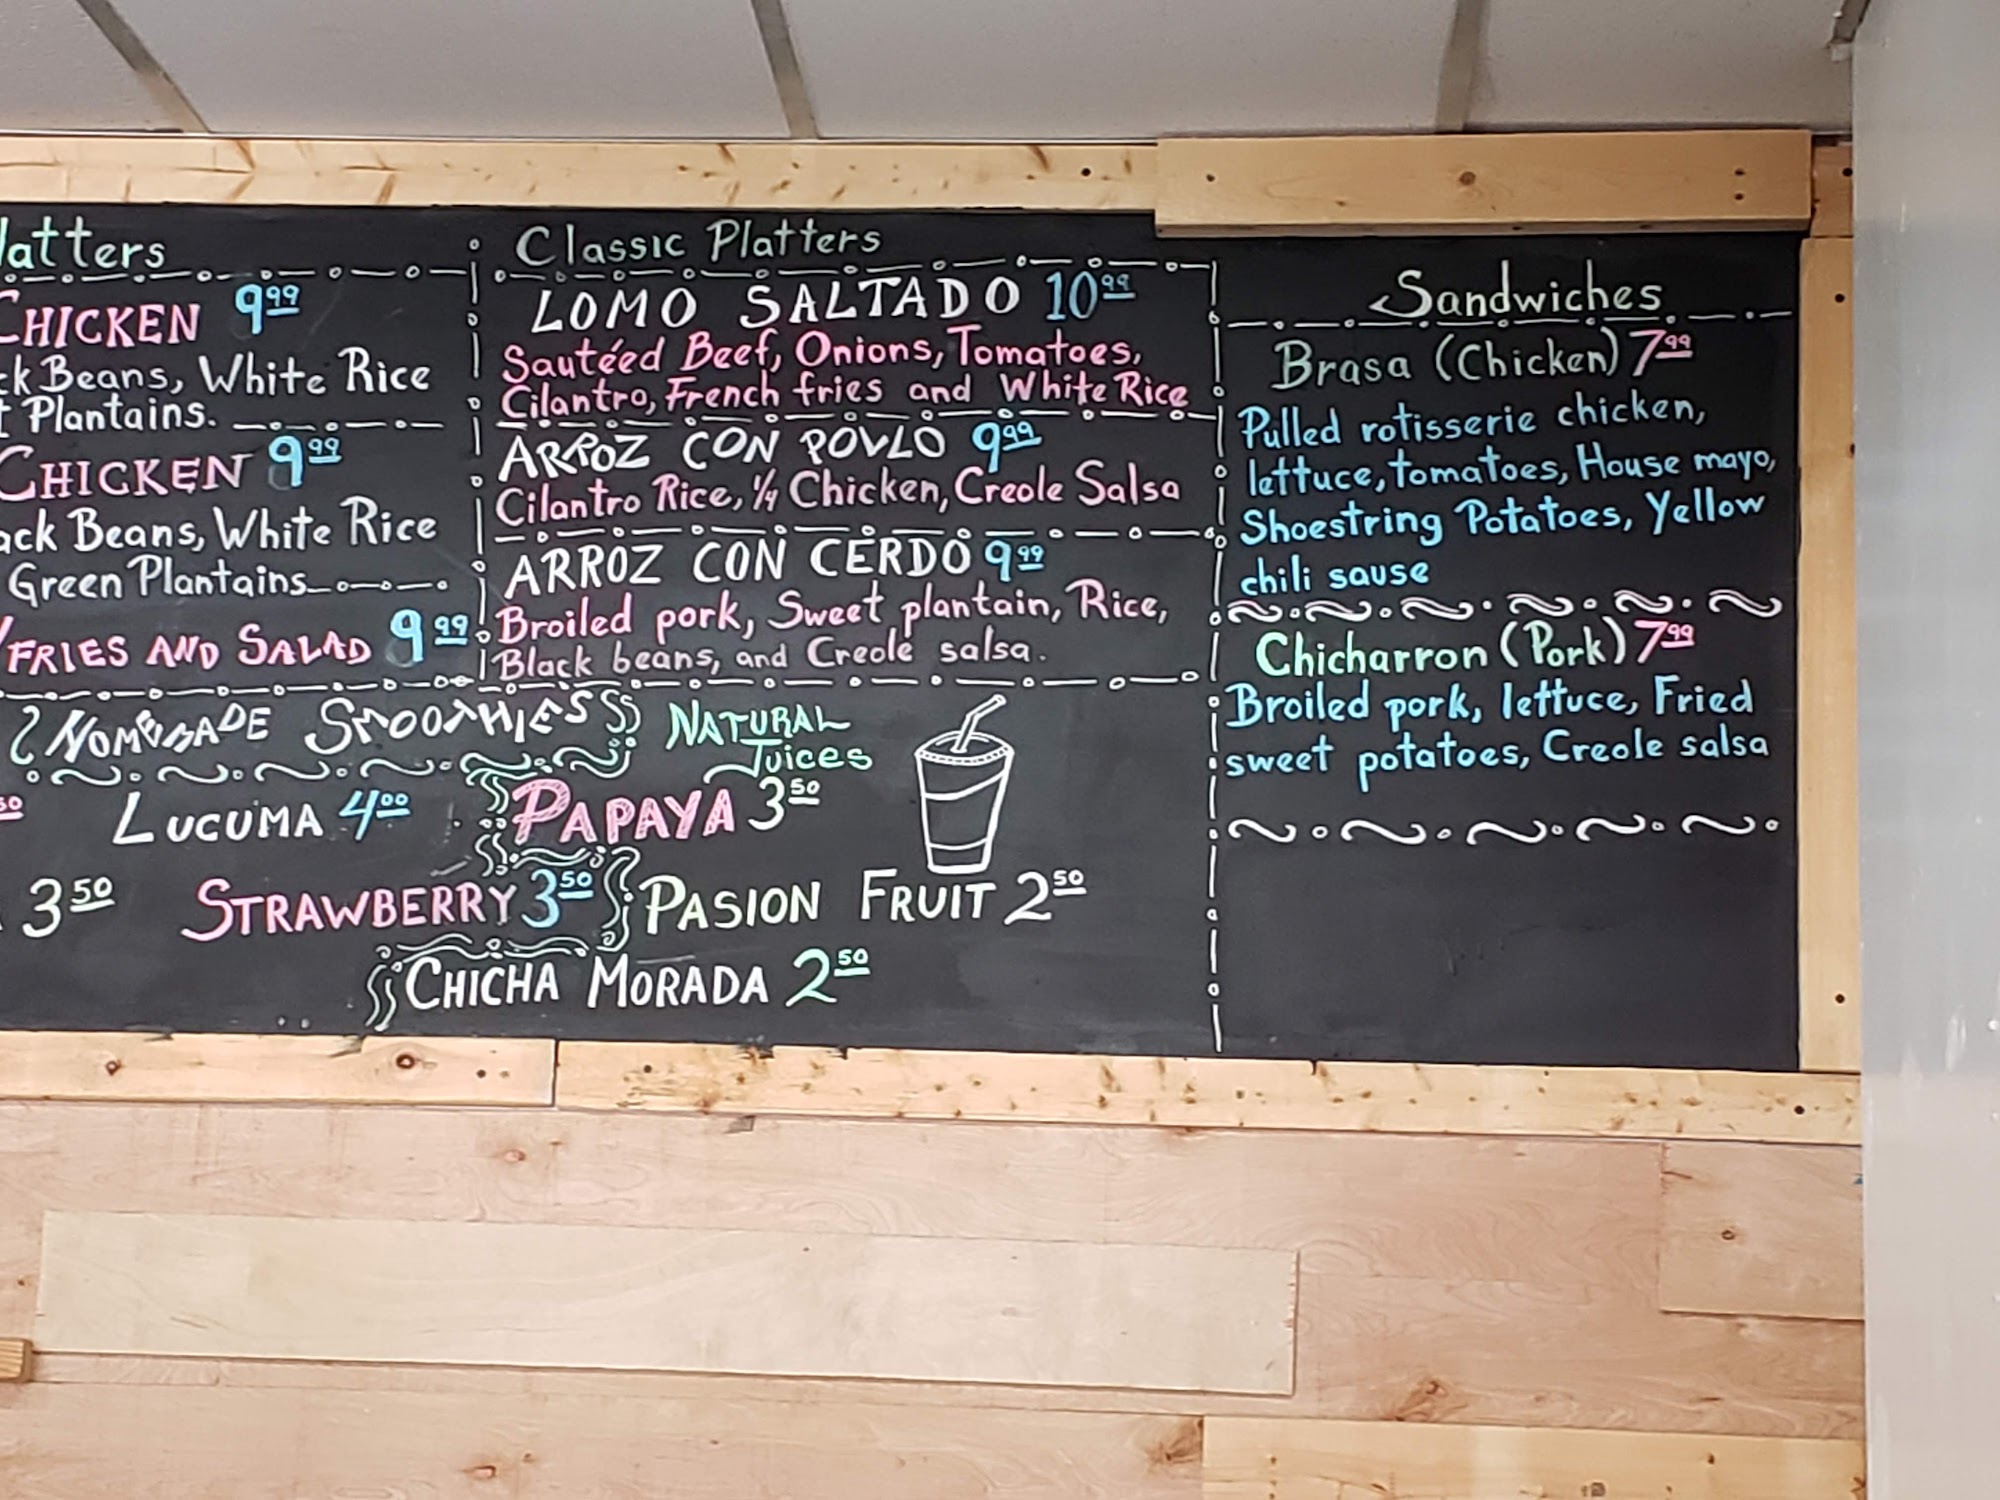 Classic Platters
CHICKEN 9.99
Beans, White Rice
Plantains.
CHICKEN 9.99
Beans, White Rice
Green Plantains
FRIES AND SALAD 9.99
LOMO SALTADO 10.99
Sautéed Beef, Onions, Tomatoes,
Cilantro, French fries and White Rice
ARROZ CON POVLO 9.99
Cilantro Rice, 1/4 Chicken, Creole Salsa
ARROZ CON CERDO 9.99
Broiled pork, Sweet plantain, Rice,
Black beans, and Creole salsa.
Sandwiches
Brasa (Chicken) 7.99
Pulled rotisserie chicken,
lettuce, tomatoes, House mayo,
Shoestring Potatoes, Yellow
chili sause
Chicharron (Pork) 7.99
Broiled pork, lettuce, Fried
sweet potatoes, Creole salsa
HOMEMADE SMOOTHIES
LUCUMA 4.00
3.50 STRAWBERRY 3.50
NATURAL
Juices
PAPAYA 3.50
PASION FRUIT 2.50
CHICHA MORADA 2.50